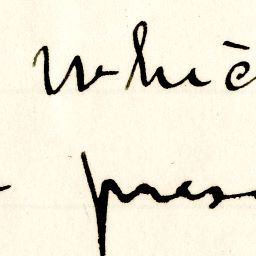 whic
pres